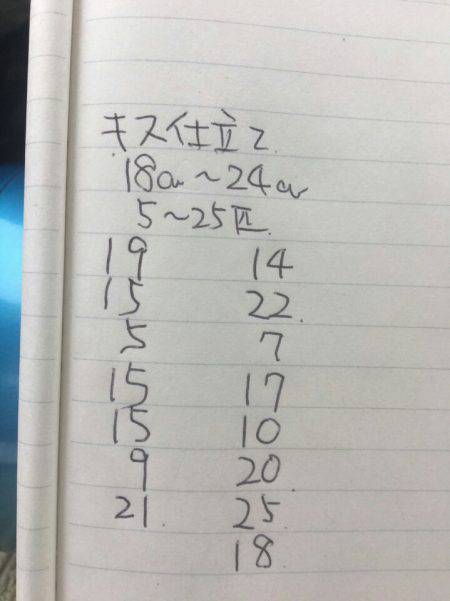 キス仕立て
18cm〜24cm
5〜25匹
19 14
15 22
5 7
15 17
15 10
9 20
21 25
18